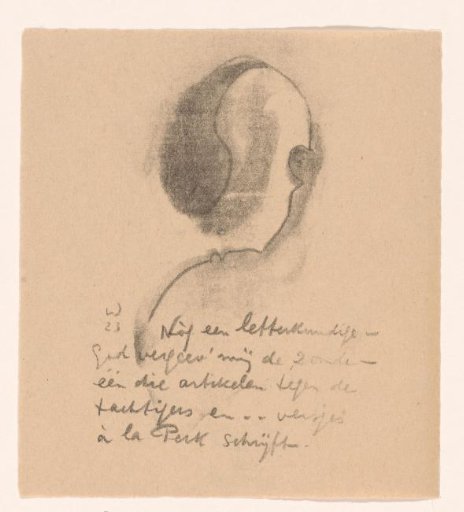 W
23
Nòg een letterkundige -
God vergeev' mij de zonde -
één die artikelen tegen de
tachtigers en .. versjes
à la Perk schrijft.